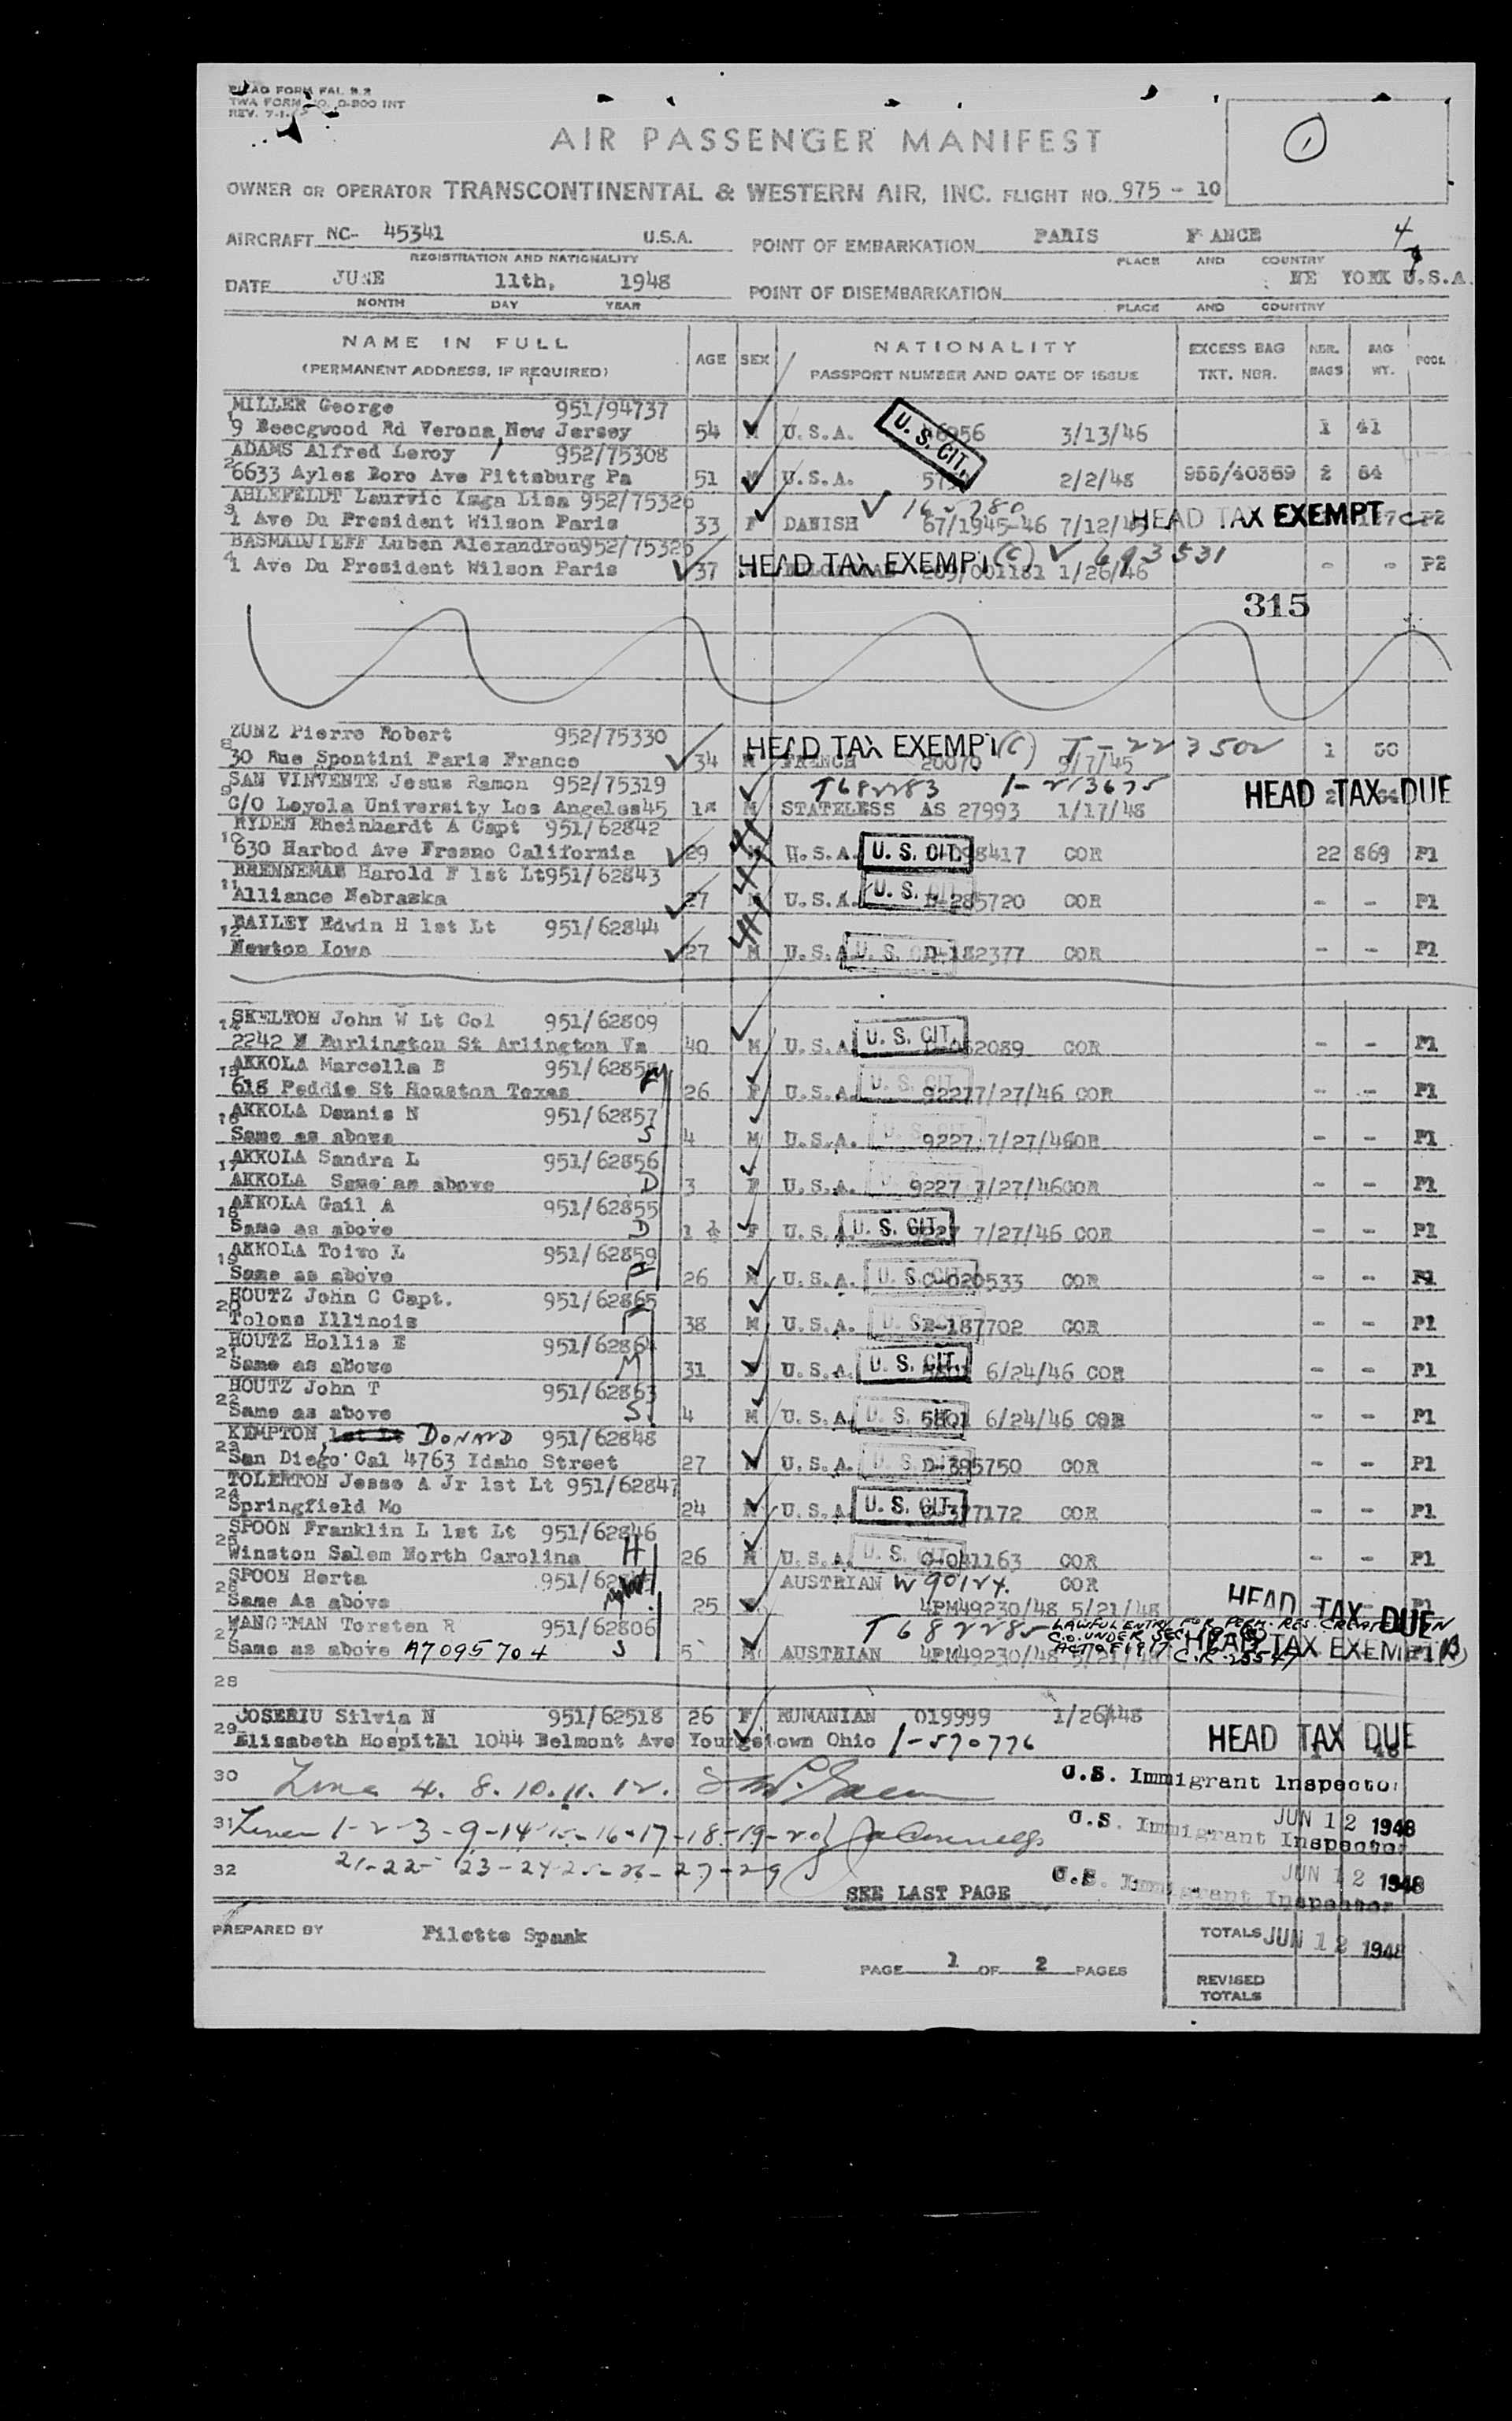 PICAO FORM FAL 2.2
TWA FORM NO. O-800 INT
REV. 7-1-
AIR PASSENGER MANIFEST
1
OWNER OR OPERATOR TRANSCONTINENTAL & WESTERN AIR, INC. FLIGHT NO. 975 - 10
AIRCRAFT NC- 45341 U.S.A. POINT OF EMBARKATION PARIS F ANCE 4
REGISTRATION AND NATIONALITY PLACE AND COUNTRY
DATE JUNE 11th, 1948 POINT OF DISEMBARKATION NE YORK U.S.A.
MONTH DAY YEAR PLACE AND COUNTRY
NAME IN FULL AGE SEX NATIONALITY EXCESS BAG NBR. BAG POOL
(PERMANENT ADDRESS, IF REQUIRED) PASSPORT NUMBER AND DATE OF ISSUE TKT. NBR. BAGS WT.
MILLER George 951/94737
1 9 Beecgwood Rd Verona, New Jersey 54 M U.S.A. U.S. CIT. 6956 3/13/46 1 41
ADAMS Alfred Leroy 952/75308
2 6633 Ayles Boro Ave Pittsburg Pa 51 M U.S.A. 2/2/48 955/40359 2 54
AHLEFELDT Laurvic Inga Lisa 952/75326
3 1 Ave Du President Wilson Paris 33 F DANISH 67/1945-46 7/12/45 HEAD TAX EXEMPT C P2
BASMADJIEFF Luben Alexandrou 952/75325
4 1 Ave Du President Wilson Paris 37 HEAD TAX EXEMPT (C) 693531 1/26/46 - - P2
315
ZUNZ Pierre Robert 952/75330
8 30 Rue Spontini Paris France 34 M FRENCH HEAD TAX EXEMPT (C) T-223502 20070 9/7/45 1 50
SAN VINVENTE Jesus Ramon 952/75319 T682283 1-213675
9 C/O Loyola University Los Angeles45 M STATELESS AS 27993 1/17/48 HEAD TAX DUE
RYDEN Rheinhardt A Capt 951/62842
10 630 Harbod Ave Fresno California 29 M U.S.A. U.S. CIT. 98417 COR 22 869 P1
BRENNEMAN Harold F 1st Lt951/62843
11 Alliance Nebraska 27 M U.S.A. U.S. CIT. D-285720 COR - - P1
BAILEY Edwin H 1st Lt 951/62844
12 Newton Iowa 27 M U.S.A. U.S. CIT. D-182377 COR - - P1
SKELTON John W Lt Col 951/62809
14 2242 N Burlington St Arlington Va 40 M U.S.A. U.S. CIT. 62089 COR - - P1
AKKOLA Marcella B 951/62858 M
15 618 Peddie St Houston Texas 26 F U.S.A. U.S. CIT. 9227 7/27/46 COR - - P1
AKKOLA Dennis N 951/62857
16 Same as above S 4 M U.S.A. U.S. CIT. 9227 7/27/46COR - - P1
AKKOLA Sandra L 951/62856
17 AKKOLA Same as above D 3 F U.S.A. 9227 7/27/46COR - - P1
AKKOLA Gail A 951/62855
18 Same as above D 1 ½ F U.S.A. U.S. CIT. 9227 7/27/46 COR - - P1
AKKOLA Toivo L 951/62859
19 Same as above F 26 M U.S.A. U.S. CIT. O-020533 COR - - P1
HOUTZ John C Capt. 951/62865
20 Tolona Illinois F 38 M U.S.A. U.S. CIT. B-187702 COR - - P1
HOUTZ Hollis E 951/62864
21 Same as above M 31 F U.S.A. U.S. CIT. 5801 6/24/46 COR - - P1
HOUTZ John T 951/62863
22 Same as above S 4 M U.S.A. U.S. CIT. 5801 6/24/46 COR - - P1
KEMPTON, 1st Lt DONALD 951/62848
23 San Diego Cal 4763 Idaho Street 27 M U.S.A. U.S. CIT. D-395750 COR - - P1
TOLERTON Jesse A Jr 1st Lt 951/62847
24 Springfield Mo 24 M U.S.A. U.S. CIT. 377172 COR - - P1
SPOON Franklin L 1st Lt 951/62846
25 Winston Salem North Carolina H 26 M U.S.A. U.S. CIT. O-041163 COR - - P1
SPOON Herta 951/62 AUSTRIAN W 90124. COR
26 Same As above 25 F 4PM49230/48 5/21/48 HEAD TAX DUE P1
WANG TMAN Torsten R 951/62806 T682285 LAWFUL ENTRY FOR PERM. RES. CREATED IN
27 Same as above A7095704 S 5 M AUSTRIAN 4PM49230/48 5/21/48 HEAD TAX EXEMPT (B) P1
C.O. UNDER SEC
ACT OF 1917
28
COSERIU Silvia N 951/62518 26 F RUMANIAN 019999 1/26/48
29 Elisabeth Hospital 1044 Belmont Ave Youngstown Ohio 1-570776 HEAD TAX DUE
30 Lines 4. 8. 10. 11. 12. U.S. Immigrant Inspector
JUN 12 1948
31 Lines 1-2-3-9-14-15-16-17-18-19-20 U.S. Immigrant Inspector
JUN 12 1948
32 21-22-23-24-25-26-27-29 U.S. Immigrant Inspector
SEE LAST PAGE
PREPARED BY Pilette Spaak TOTALS JUN 12 1948
PAGE 1 OF 2 PAGES
REVISED
TOTALS